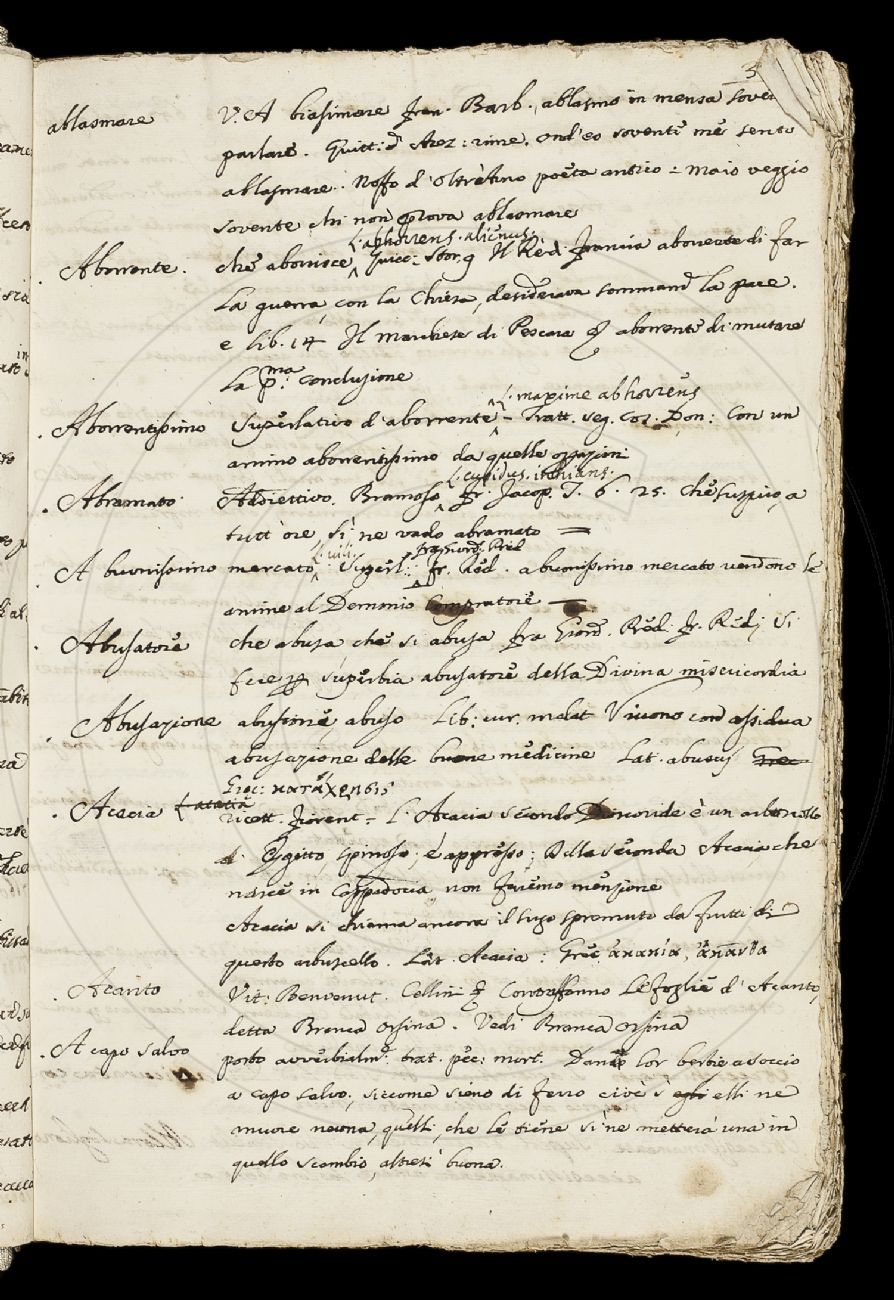 3
ablasmare V. A biasimare Fran. Barb., ablasmo in mensa sover
parlare. Guitt: d' Arez: rime. Ond' eo soventi me sento
ablasmare. Noffo d' Oltrarno poeta antico = Maio veggio
sovente chi non prova ablasmare
L. abhorrens. alienus.
Aborrente. che aborrisce Guicc. Stor. 9 Il Re di Francia aborrente di far
la guerra, con la Chiesa, desiderava sommamᵉ la pace.
e lib. 14 Il marchese di Pescara aborrente di mutare
la pma: conclusione
L. maxime abhorrens
Aborrentissimo Superlativo d' aborrente - Tratt. seg. cos. Don: Con un
animo aborrentissimo da quelle orazioni
L. cupidus. inhians.
Abramato Addiettivo. Bramoso Fr. Jacop. T. 6. 25. che suspiro, a
tutt' ore, sì ne vado abramato =
L. vili. fra Giord. Pred
A buonissimo mercato. Superl: Fr. Red. a buonissimo mercato vendono le
anime al Demonio Compratore =
Abusatore che abusa che si abusa fra Giord. Pred. Fr. Red; Si
fece p superbia abusatore della Divina misericordia
Abusazione abusione, abuso Lib: cur. malat Vivono con assidua
abusazione delle buone medicine Lat. abusus Grec
Grec: κατάχρησις
Acacia ricett. Fiorent = L' Acacia secondo Dioscoride è un arboscello
d' Egitto, spinoso; e appresso; Della seconda Acacia che
nasce in Cappadocia, non faremo menzione
Acacia si chiama ancora il sugo spremuto da frutti di
questo arbuscello. Lat. Acacia: Grec. ἀκακία,
Acanto Vit: Benvenut. Cellini Contraffanno le foglie d' Acanto,
detta Branca orsina. Vedi Branca orsina
A capo salvo posto avverbialmᵉ: trat. pec: mort. Danno lor bestie a soccio
a capo salvo, siccome sieno di ferro cioè s' egli elli ne
muore neuna, quelli, che le tiene si ne metterà una in
quello scambio, altresì buona.